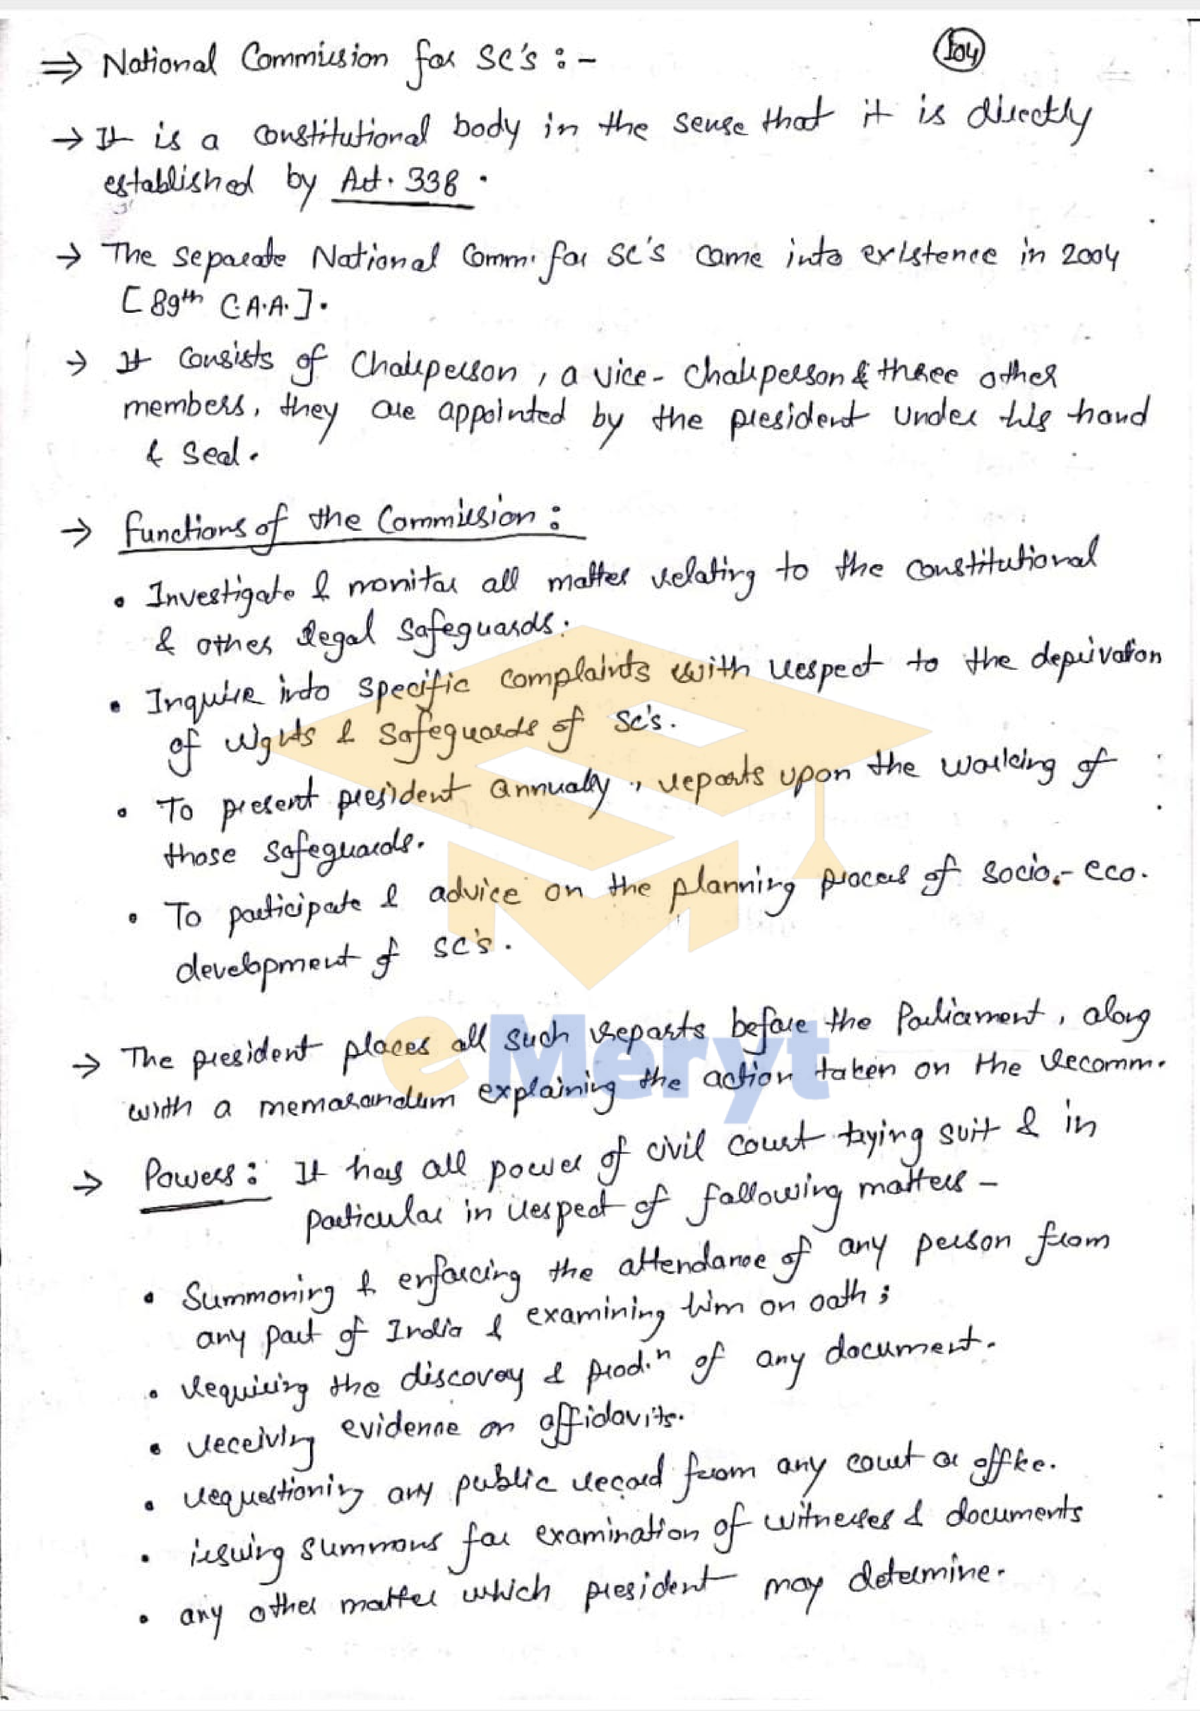 ⇒ National Commission for SC's :-
104
→ It is a constitutional body in the sense that it is directly
established by Art. 338.
→ The separate National Comm. for SC's came into existence in 2004
[89th C.A.A.].
→ It consists of Chairperson, a vice-chairperson & three other
members, they are appointed by the president under his hand
& seal.
→ Functions of the Commission:
• Investigate & monitor all matter relating to the constitutional
& other legal safeguards.
• Inquire into specific complaints with respect to the deprivation
of rights & safeguards of SC's.
• To present president annually, reports upon the working of
those safeguards.
• To participate & advice on the planning process of socio.-eco.
development of SC's.
→ The president places all such reports before the Parliament, along
with a memorandum explaining the action taken on the recomm.
eMeryt
→ Powers: It has all power of civil court trying suit & in
particular in respect of following matters -
• Summoning & enforcing the attendance of any person from
any part of India & examining him on oath;
• requiring the discovery & prod.n of any document.
• receiving evidence on affidavits.
• requestioning any public record from any court or office.
• issuing summons for examination of witnesses & documents
• any other matter which president may determine.